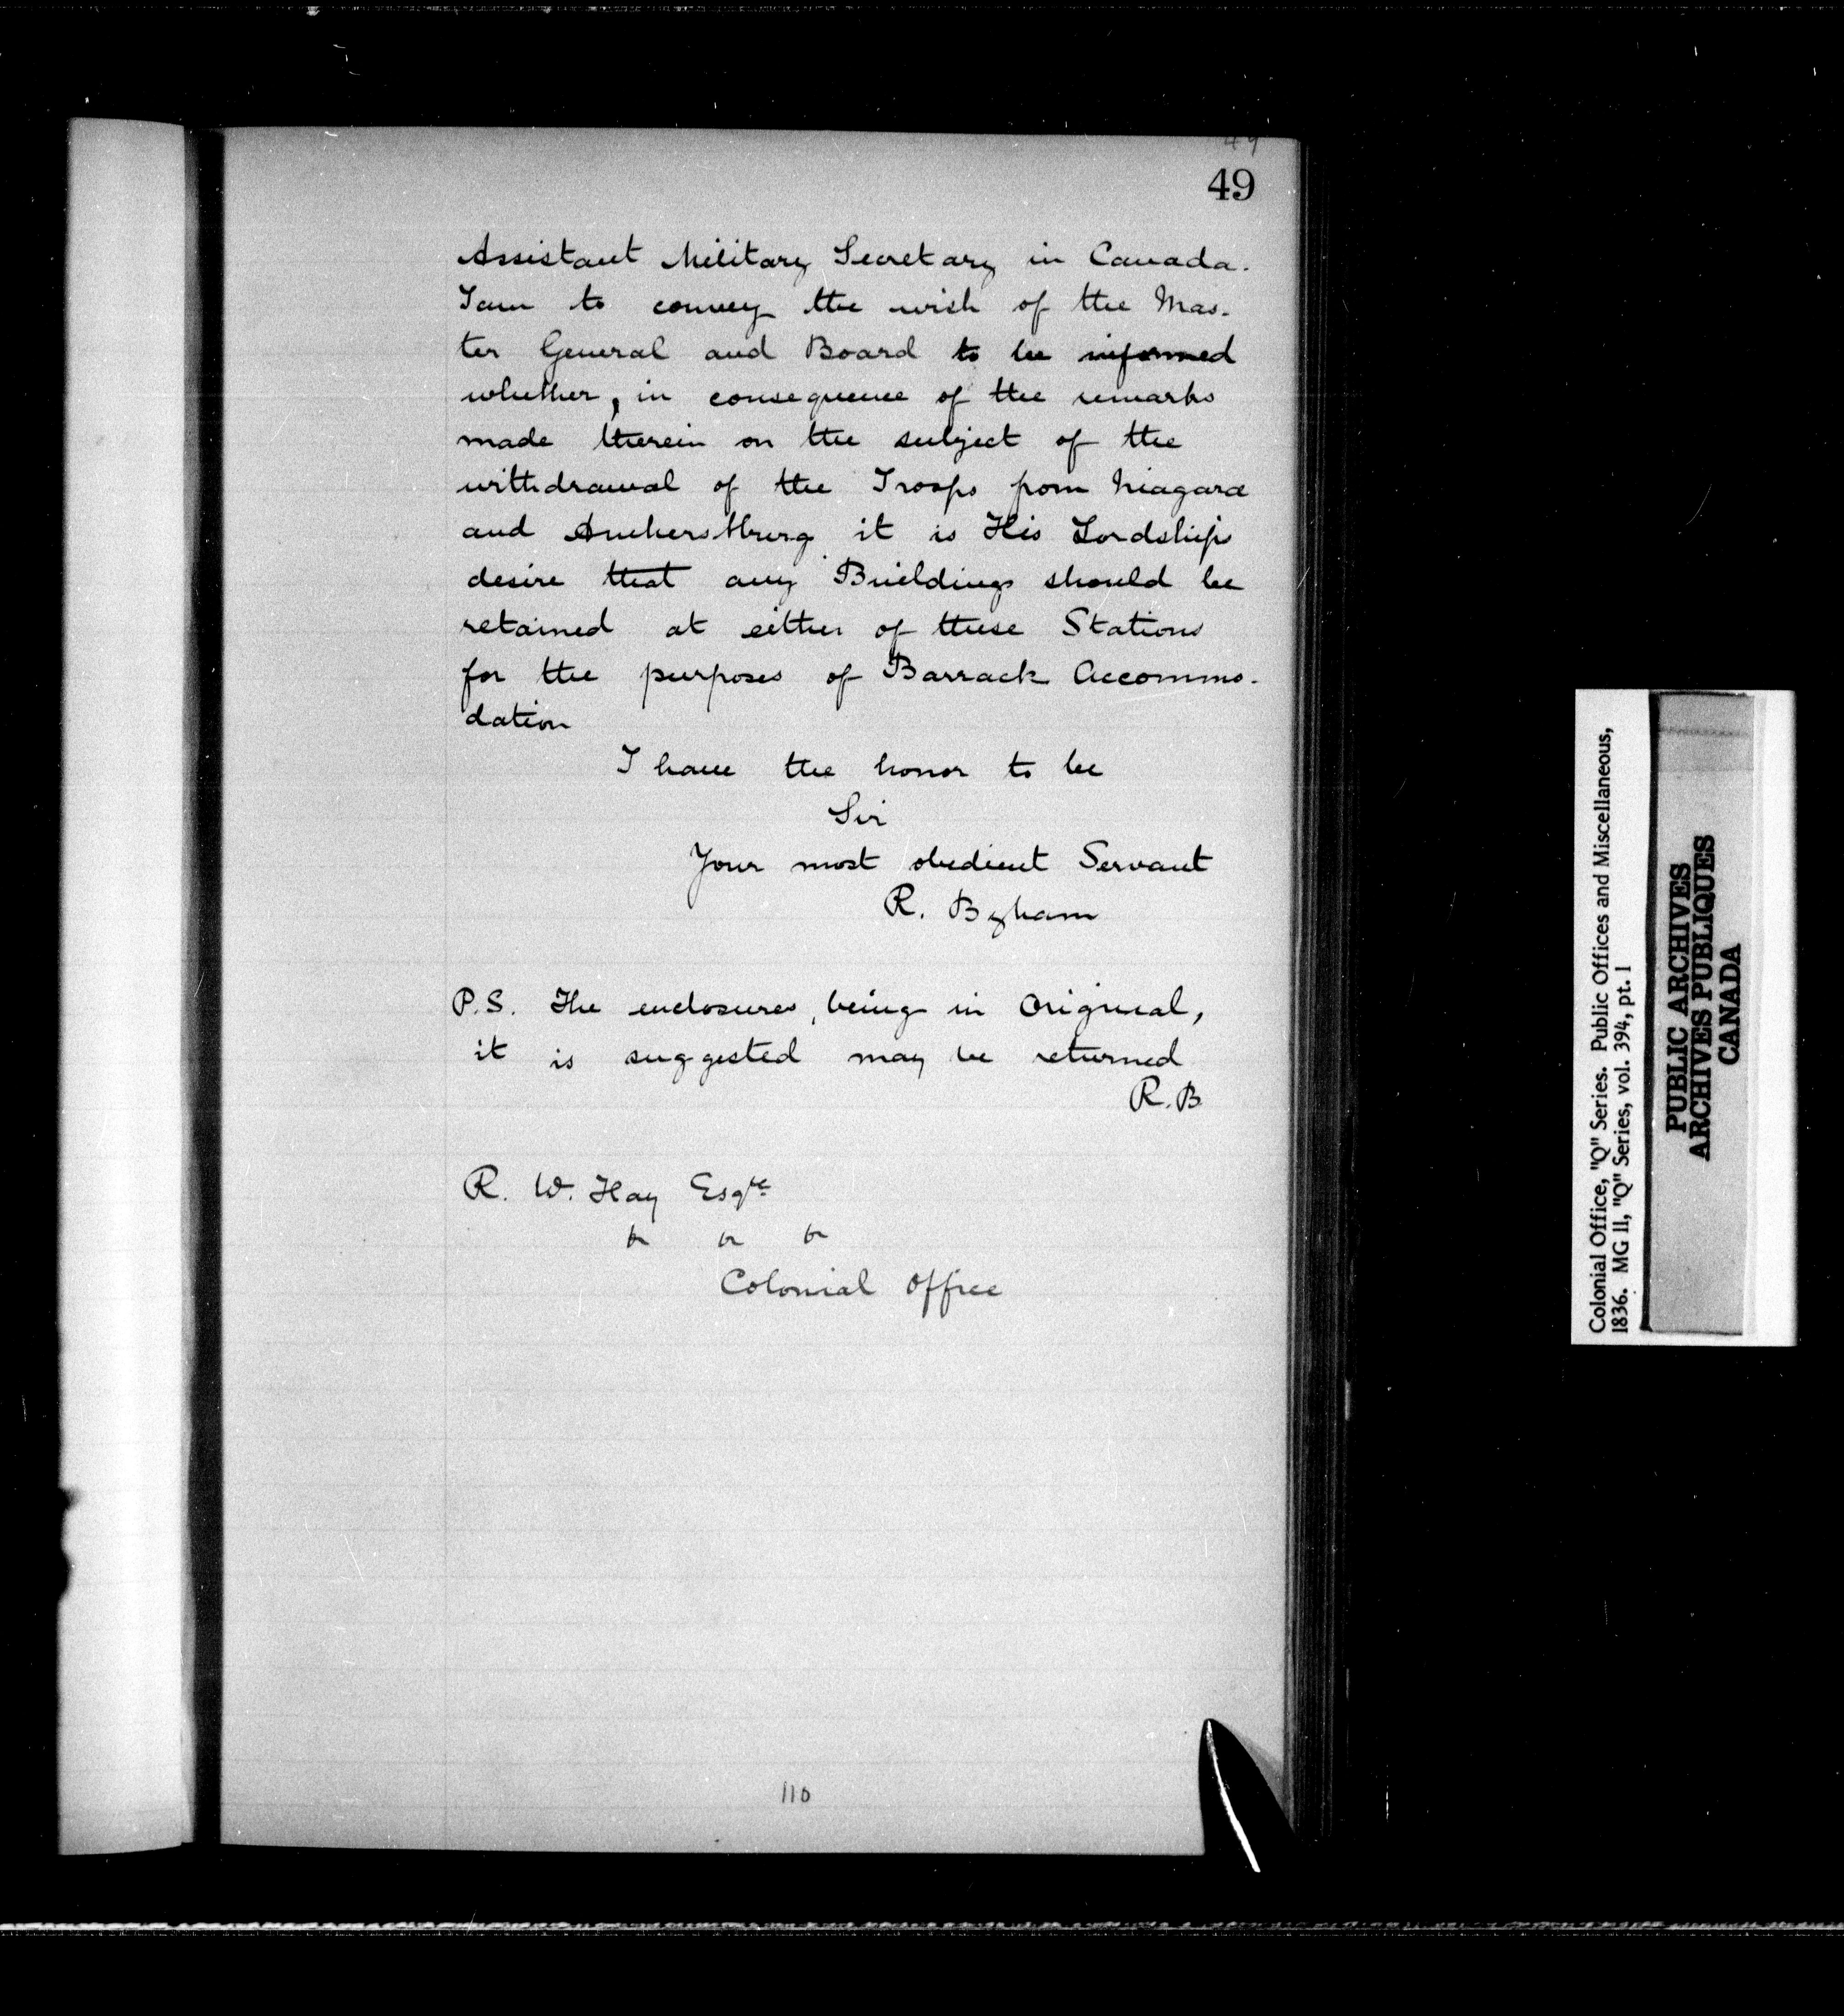 49
49
Assistant Military Secretary in Canada.
I am to convey the wish of the Mas-
ter General and Board to be informed
whether, in consequence of the remarks
made therein on the subject of the
withdrawal of the Troops from Niagara
and Amherstburg it is His Lordships
desire that any Buildings should be
retained at either of these Stations
for the purposes of Barrack Accommo-
dation
I have the honor to be
Sir
Your most obedient Servant
R. Byham
P.S. The enclosures, being in Original,
it is suggested may be returned
R.B
R. W. Hay Esqre
Colonial Office
110
Colonial Office, "Q" Series. Public Offices and Miscellaneous,
1836. MG 11, "Q" Series, vol. 394, pt. 1
PUBLIC ARCHIVES
ARCHIVES PUBLIQUES
CANADA